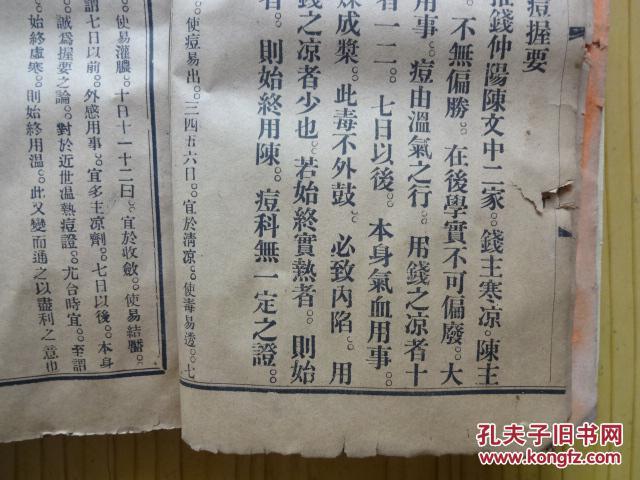 痘握要
錢仲陽陳文中二家。錢主寒凉。陳主
不無偏勝。在後學實不可偏廢。大
用事。痘由溫氣之行。用錢之凉者十
者一二。七日以後。本身氣血用事。
成漿。此毒不外鼓。必致內陷。用
錢之凉者少也。若始終實熱者。則始
者。則始終用陳。痘科無一定之證。
使痘易出。三四五六日。宜於清凉。使毒易透。七
使易灌膿。十日十一十二日。宜於收斂。使易結靨。
謂七日以前。外感用事。宜多主凉劑。七日以後。本身
誠爲握要之論。對於近世温熱痘證。尤合時宜。至謂
始終虛寒。則始終用溫。此又變而通之以盡利之意也
孔夫子旧书网
KONGFZ.COM